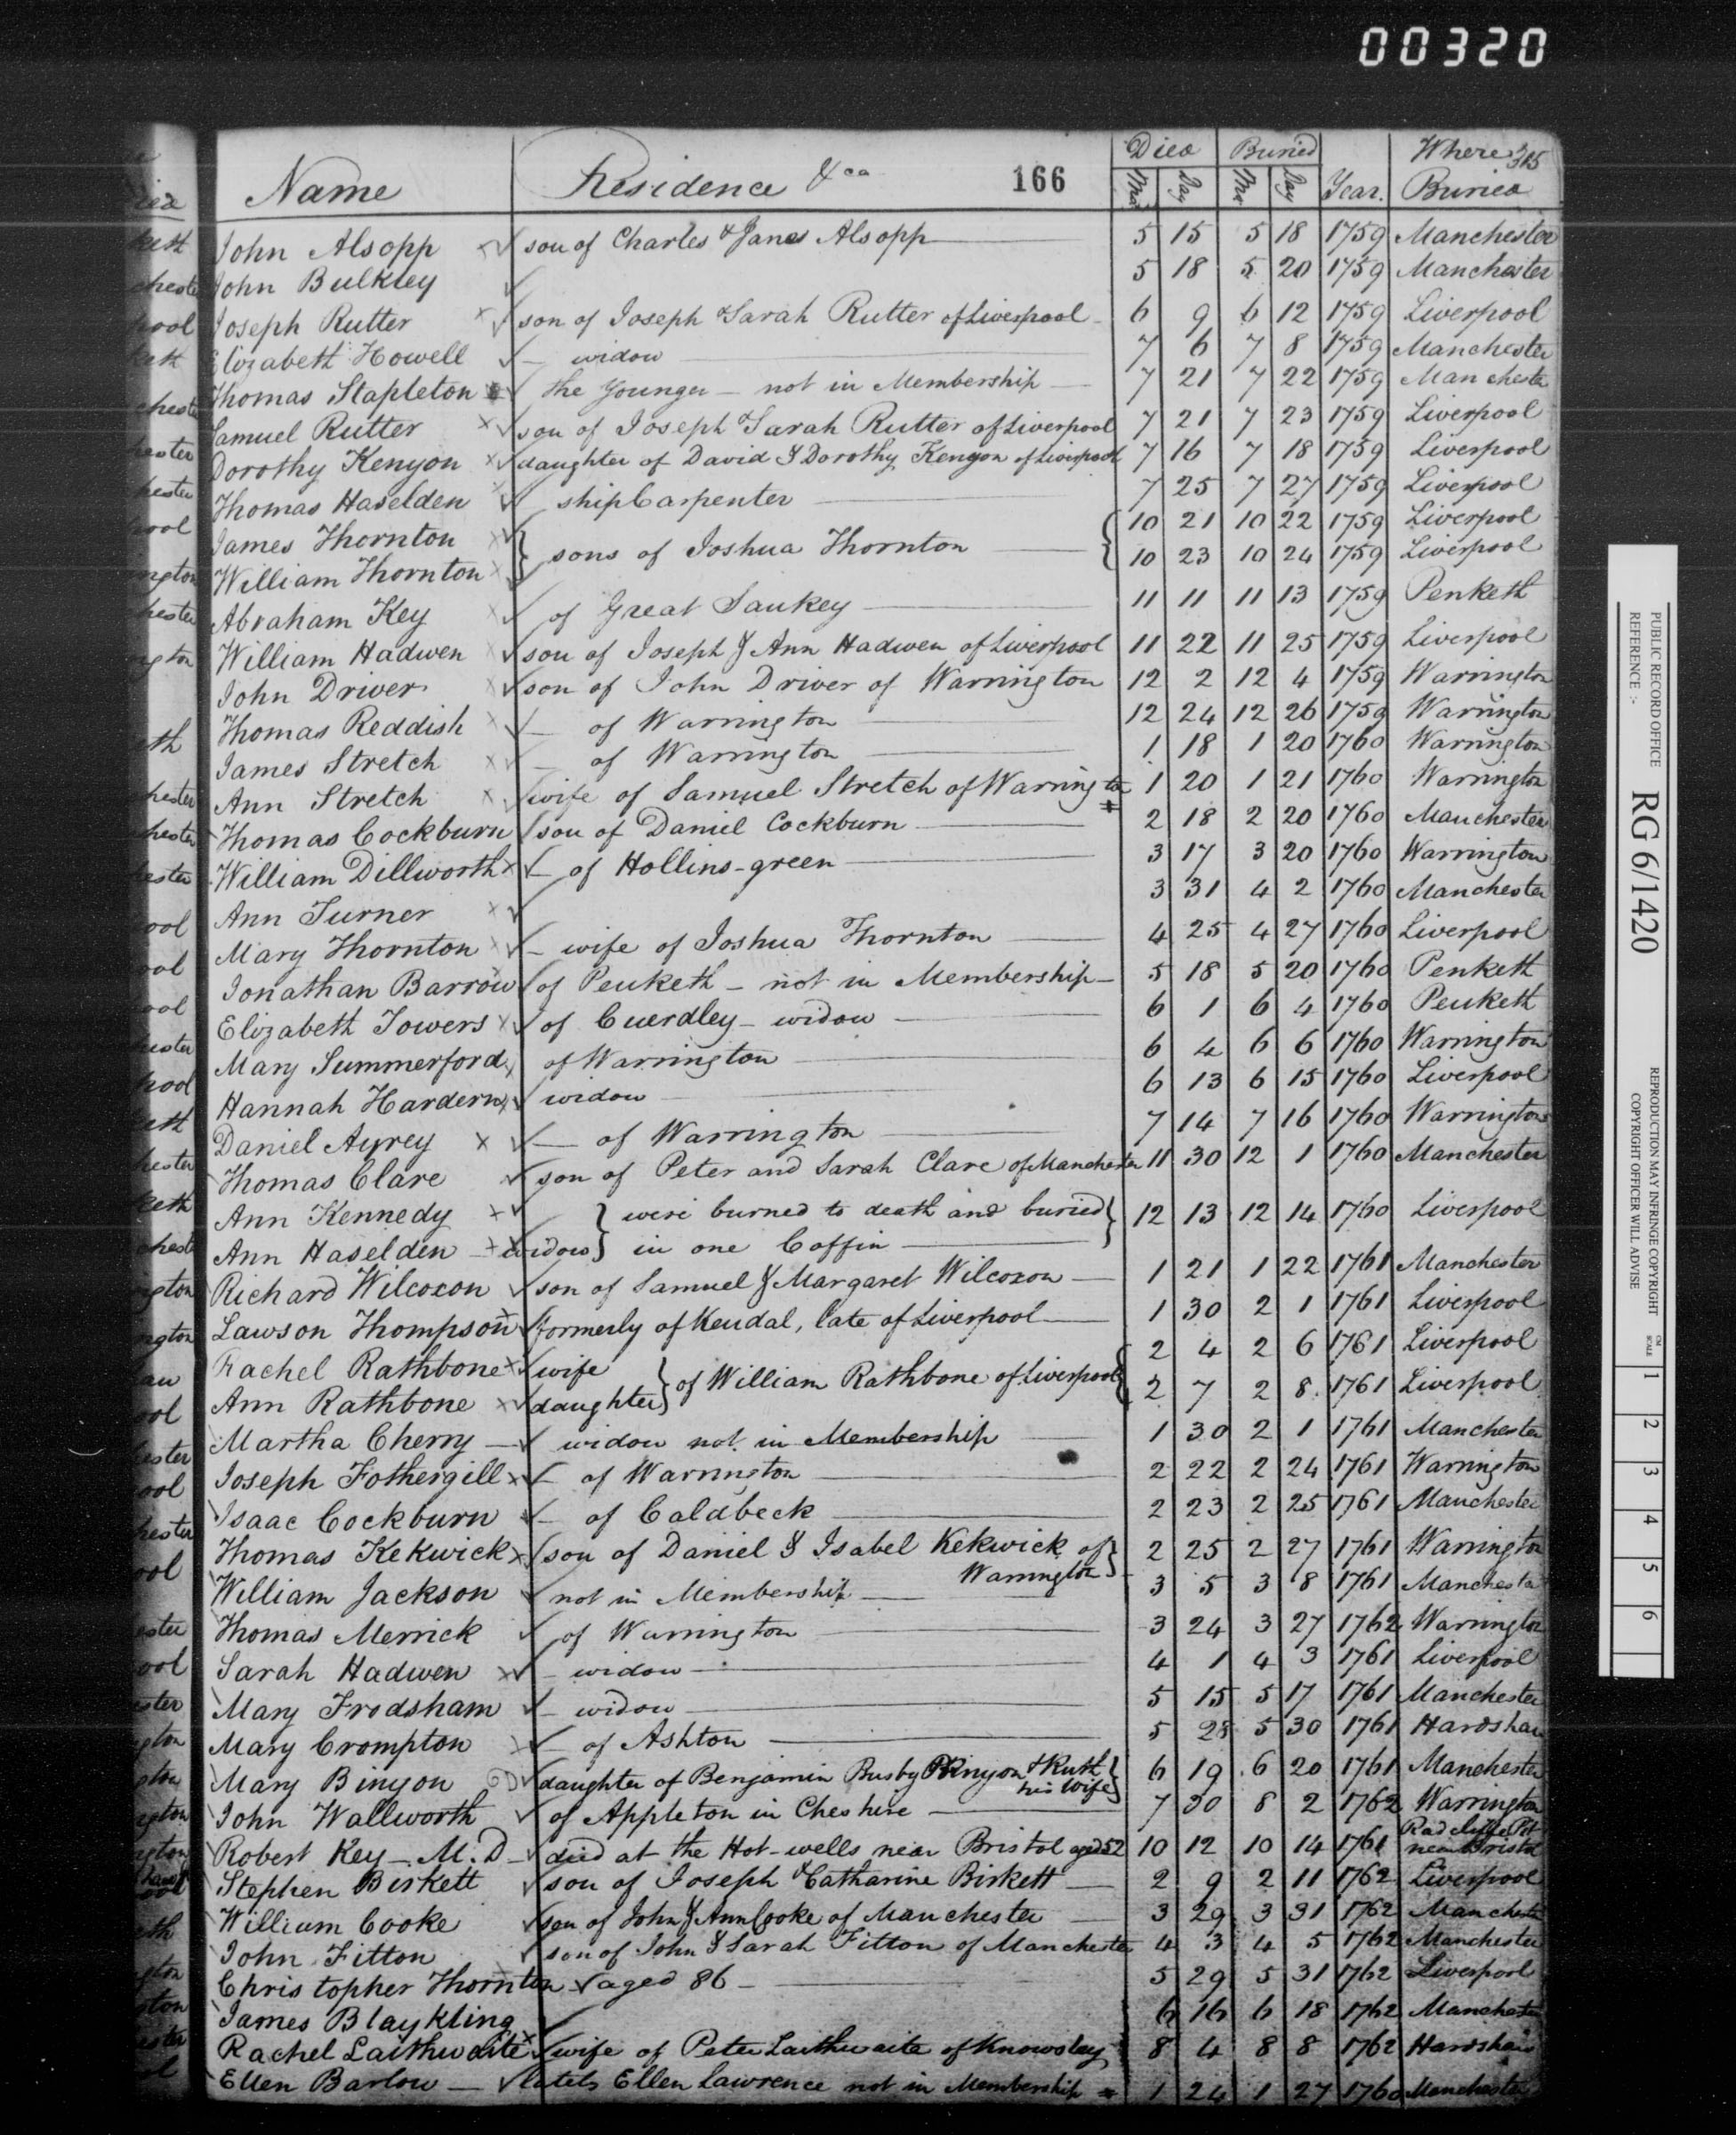 00320
Name Residence &ca 166 Died Buried Where 315
Mo. Day Mo. Day Year. Buried
John Alsopp son of Charles & Janes Alsopp 5 15 5 18 1759 Manchester
John Bulkley 5 18 5 20 1759 Manchester
Joseph Rutter son of Joseph & Sarah Rutter of Liverpool 6 9 6 12 1759 Liverpool
Elizabeth Howell widow 7 6 7 8 1759 Manchester
Thomas Stapleton the Younger - not in Membership 7 21 7 22 1759 Manchester
Samuel Rutter son of Joseph & Sarah Rutter of Liverpool 7 21 7 23 1759 Liverpool
Dorothy Kenyon daughter of David & Dorothy Kenyon of Liverpool 7 16 7 18 1759 Liverpool
Thomas Haselden ship Carpenter 7 25 7 27 1759 Liverpool
James Thornton } sons of Joshua Thornton { 10 21 10 22 1759 Liverpool
William Thornton 10 23 10 24 1759 Liverpool
Abraham Key of Great Saukey 11 11 11 13 1759 Penketh
William Hadwen son of Joseph & Ann Hadwen of Liverpool 11 22 11 25 1759 Liverpool
John Driver son of John Driver of Warrington 12 2 12 4 1759 Warrington
Thomas Reddish of Warrington 12 24 12 26 1759 Warrington
James Stretch of Warrington 1 18 1 20 1760 Warrington
Ann Stretch wife of Samuel Stretch of Warrington 1 20 1 21 1760 Warrington
Thomas Cockburn son of Daniel Cockburn 2 18 2 20 1760 Manchester
William Dillworth of Hollins-green 3 17 3 20 1760 Warrington
Ann Turner 3 31 4 2 1760 Manchester
Mary Thornton - wife of Joshua Thornton 4 25 4 27 1760 Liverpool
Jonathan Barrow of Penketh - not in Membership - 5 18 5 20 1760 Penketh
Elizabeth Towers of Cuerdley - widow 6 1 6 4 1760 Penketh
Mary Summerford of Warrington 6 4 6 6 1760 Warrington
Hannah Hardern widow 6 13 6 15 1760 Liverpool
Daniel Ayrey of Warrington 7 14 7 16 1760 Warrington
Thomas Clare son of Peter and Sarah Clare of Manchester 11 30 12 1 1760 Manchester
Ann Kennedy } were burned to death and buried } 12 13 12 14 1760 Liverpool
Ann Haselden widow } in one Coffin
Richard Wilcoxon son of Samuel & Margaret Wilcoxon 1 21 1 22 1761 Manchester
Lawson Thompson formerly of Kendal, late of Liverpool 1 30 2 1 1761 Liverpool
Rachel Rathbone wife } of William Rathbone of Liverpool { 2 4 2 6 1761 Liverpool
Ann Rathbone daughter 2 7 2 8 1761 Liverpool
Martha Cherry widow not in Membership 1 30 2 1 1761 Manchester
Joseph Fothergill of Warrington 2 22 2 24 1761 Warrington
Isaac Cockburn of Caldbeck 2 23 2 25 1761 Manchester
Thomas Kekwick son of Daniel & Isabel Kekwick of } 2 25 2 27 1761 Warrington
Warrington
William Jackson not in Membership 3 5 3 8 1761 Manchester
Thomas Merrick of Warrington 3 24 3 27 1762 Warrington
Sarah Hadwen widow 4 1 4 3 1761 Liverpool
Mary Frodsham widow 5 15 5 17 1761 Manchester
Mary Crompton of Ashton 5 28 5 30 1761 Hardshaw
Mary Binyon daughter of Benjamin Busby Binyon & Ruth } 6 19 6 20 1761 Manchester
his wife
John Wallworth of Appleton in Cheshire 7 30 8 2 1762 Warrington
Robert Key - M.D - died at the Hot-wells near Bristol aged 52 10 12 10 14 1761 Radcliffe Pit near Bristol
Stephen Birkett son of Joseph & Catharine Birkett 2 9 2 11 1762 Liverpool
William Cooke son of John & Ann Cooke of Manchester 3 29 3 31 1762 Manchester
John Fitton son of John & Sarah Fitton of Manchester 4 3 4 5 1762 Manchester
Christopher Thornton aged 86 5 29 5 31 1762 Liverpool
James Blaykling 6 16 6 18 1762 Manchester
Rachel Laithwaite wife of Peter Laithwaite of Knowsley 8 4 8 8 1762 Hardshaw
Ellen Barlow - Ellen Lawrence not in Membership 1 24 1 27 1760 Manchester
PUBLIC RECORD OFFICE
REFERENCE :-
RG 6/1420
REPRODUCTION MAY INFRINGE COPYRIGHT
COPYRIGHT OFFICER WILL ADVISE
CM SCALE 1 2 3 4 5 6